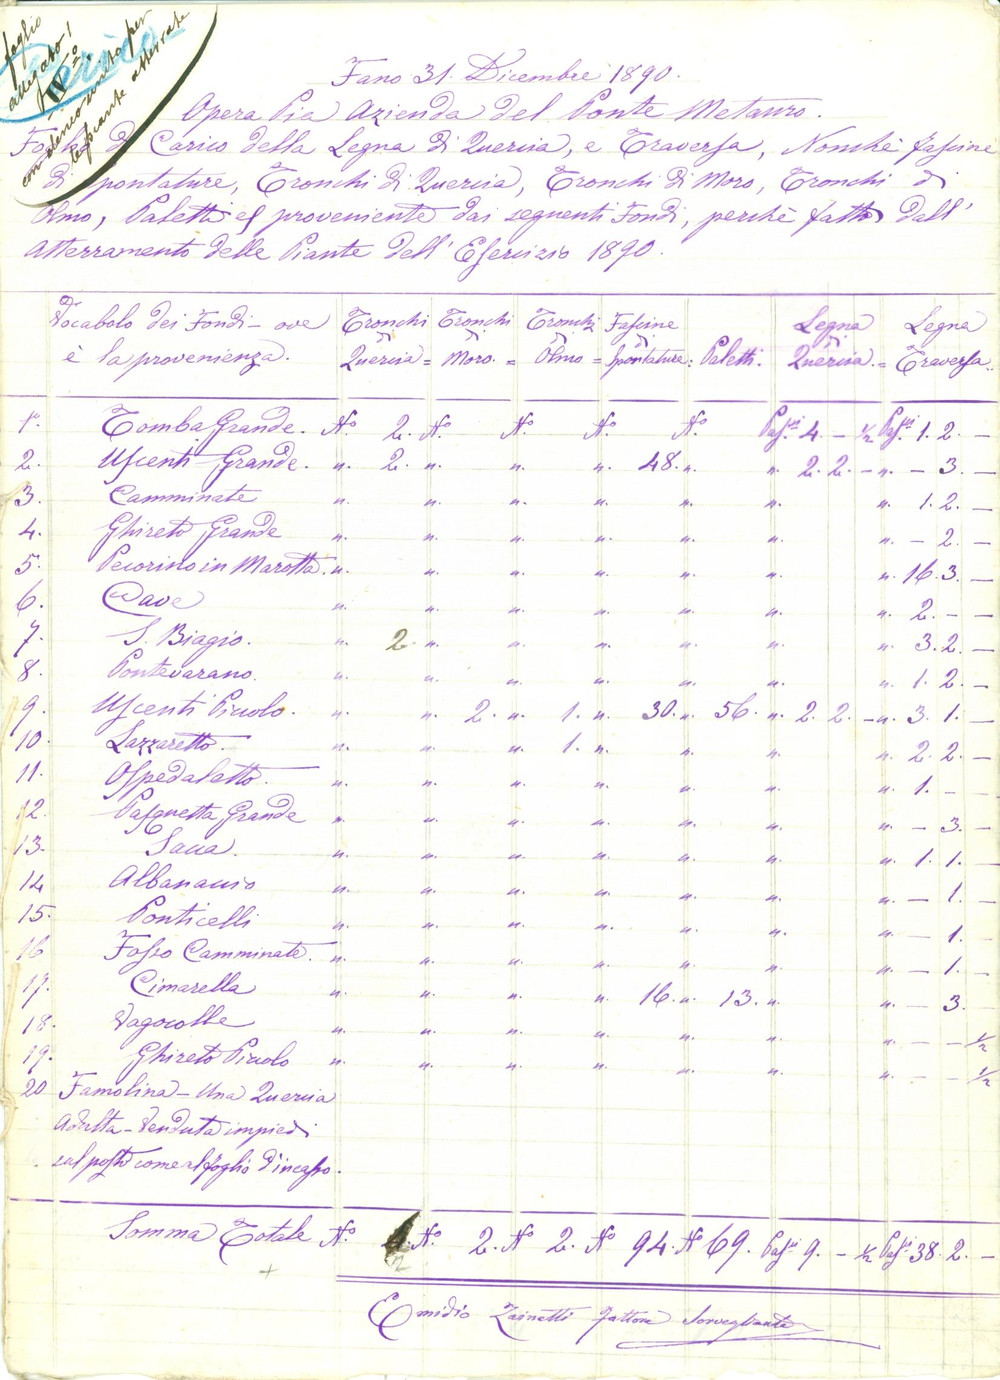 foglio
allegato 1
IV°
con elenco unito per
le piante atterrate
Carico
Fano 31. Dicembre 1890.
Opera Pia Azienda del Ponte Metauro.
Foglio di Carico della Legna di Quercia, e Traversa, Nonchè fascine
di spontature, Tronchi di Quercia, Tronchi di Moro, Tronchi di
Olmo, Paletti e proveniente dai seguenti Fondi, perchè fatto dall'
Atterramento delle Piante dell' Esercizio 1890.
Vocabolo dei Fondi - ove è la provenienza. Tronchi di Quercia = Tronchi di Moro. = Tronchi di Olmo = Fascine di Spontature: Paletti. Legna di Quercia. = Legna Traversa..
1°. Tomba Grande. N° 2. N° N° N° N° Passi 4. - ½ Passi 1. 2. -
2. Uscenti Grande. n. 2. n. n. n. 48. n. n. 2. 2. - n. - 3. -
3. Camminate n. n. n. n. n. n. n. 1. 2. -
4. Ghireto Grande n. n. n. n. n. n. n. - 2. -
5. Pecorino in Marotta. n. n. n. n. n. n. n. 16. 3. -
6. Cave n. n. n. n. n. n. n. 2. - -
7. S. Biagio. n. 2. n. n. n. n. n. n. 3. 2. -
8. Pontevarano. n. n. n. n. n. n. n. 1. 2. -
9. Uscenti Piccolo. n. n. 2. n. 1. n. 30. n. 56. n. 2. 2. - n. 3. 1. -
10. Lazzaretto. n. n. n. 1. n. n. n. n. 2. 2. -
11. Ospedaletto. n. n. n. n. n. n. n. 1. - -
12. Pasquetta Grande n. n. n. n. n. n. n. - 3. -
13. Sacca. n. n. n. n. n. n. n. 1. 1. -
14 Albanaccio n. n. n. n. n. n. n. - 1. -
15. Ponticelli n. n. n. n. n. n. n. - 1. -
16 Fosso Camminate. n. n. n. n. n. n. n. - 1. -
17. Cimarella n. n. n. n. 16. n. 13. n. n. - 3. -
18. Vagocolle n. n. n. n. n. n. n. - - ½
19. Ghireto Piccolo n. n. n. n. n. n. n. - - ½
20 Famolina - Una Quercia
adulta - Venduta impiedi
sul posto come al foglio d'incasso.
Somma Totale N° N° 2. N° 2. N° 94. N° 69. Passi 9. - ½ Passi 38. 2. -
Emidio Zainetti Fattore Sorvegliante